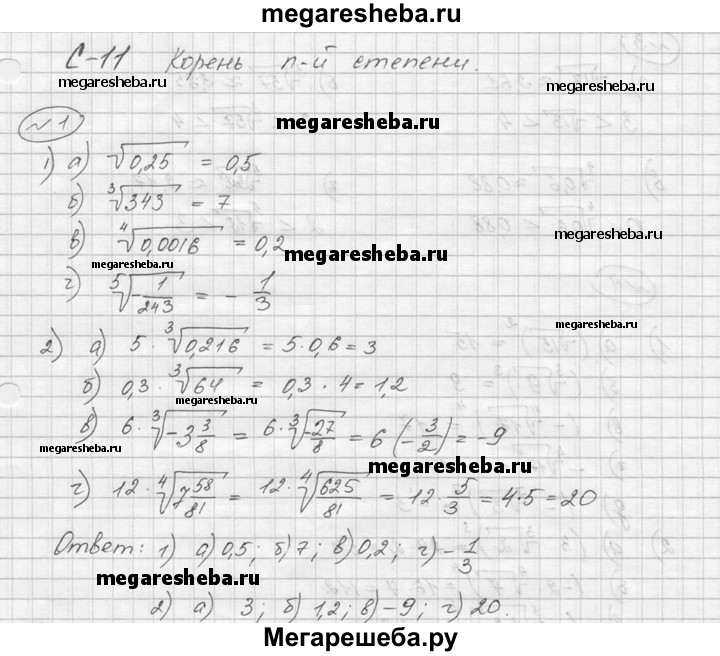 megaresheba.ru
С-11 Корень n-й степени.
megaresheba.ru
megaresheba.ru
№1
megaresheba.ru
1) а) √0,25 = 0,5
б) ∛343 = 7
в) ∜0,0016 = 0,2
megaresheba.ru
megaresheba.ru
megaresheba.ru
г) ⁵√(-1/243) = - 1/3
megaresheba.ru
2) а) 5 · ∛0,216 = 5 · 0,6 = 3
megaresheba.ru
б) 0,3 · ∛64 = 0,3 · 4 = 1,2
megaresheba.ru
в) 6 · ∛(-3 3/8) = 6 · ∛(-27/8) = 6 (-3/2) = -9
megaresheba.ru
megaresheba.ru
г) 12 · ∜(7 58/81) = 12 · ∜(625/81) = 12 · 5/3 = 4 · 5 = 20
Ответ: 1) а) 0,5; б) 7; в) 0,2; г) - 1/3
megaresheba.ru
megaresheba.ru
2) а) 3; б) 1,2; в) -9; г) 20.
Мегарешеба.ру